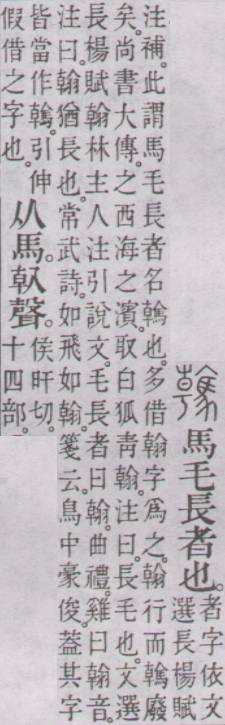 䮧馬毛長者也。
者字依文
選長楊賦
注補。此謂馬毛長者名䮧也。多借翰字爲之。翰行而䮧廢
矣。尚書大傳。之西海之濱。取白狐靑翰。注曰。長毛也。文選
長楊賦翰林主人注引說文。毛長者曰翰。曲禮。雞曰翰音。
注曰。翰猶長也。常武詩。如飛如翰。箋云。鳥中豪俊。葢其字
皆當作䮧。引伸
假借之字也。
从馬。倝聲。
侯旰切。
十四部。